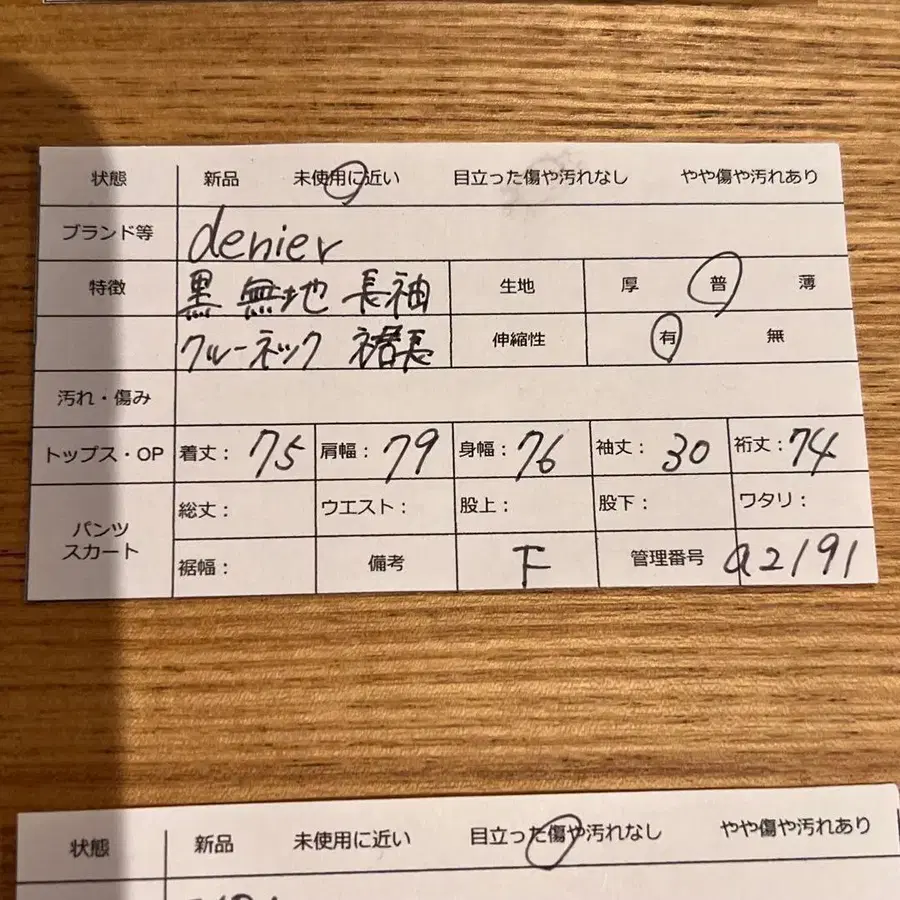 状態 新品 未使用に近い 目立った傷や汚れなし やや傷や汚れあり
ブランド等 denier
特徴 黒 無地 長袖 生地 厚 普 薄
クルーネック 裾長 伸縮性 有 無
汚れ・傷み
トップス・OP 着丈： 75 肩幅： 79 身幅： 76 袖丈： 30 裄丈： 74
パンツ スカート 総丈： ウエスト： 股上： 股下： ワタリ：
裾幅： 備考 F 管理番号 a2191
状態 新品 未使用に近い 目立った傷や汚れなし やや傷や汚れあり